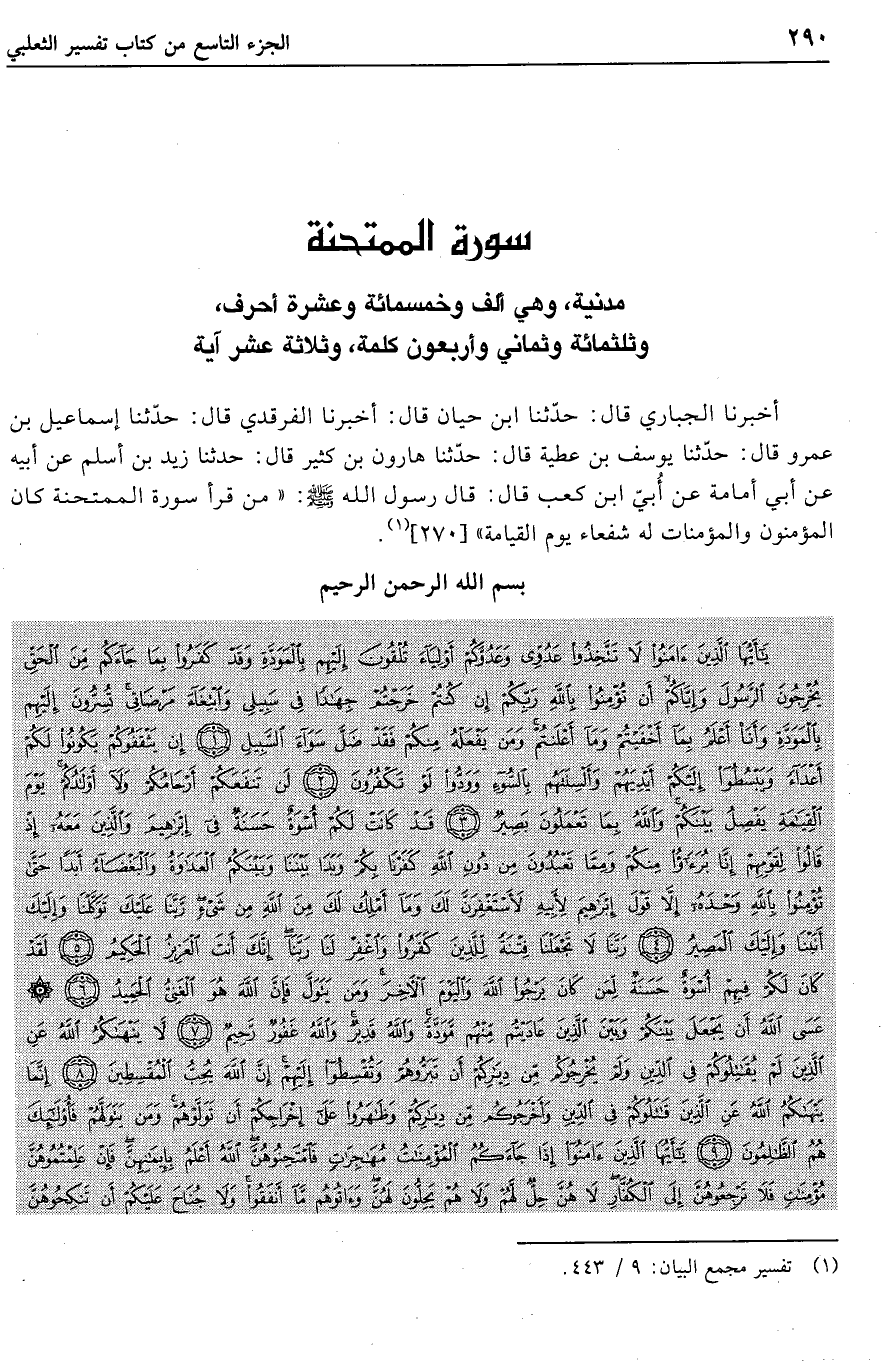 ٢٩٠ الجزء التاسع من كتاب تفسير الثعلبي
سورة الممتحنة
مدنية، وهي ألف وخمسمائة وعشرة أحرف،
وثلثمائة وثماني وأربعون كلمة، وثلاثة عشر آية
أخبرنا الجباري قال: حدّثنا ابن حيان قال: أخبرنا الفرقدي قال: حدّثنا إسماعيل بن
عمرو قال: حدّثنا يوسف بن عطية قال: حدّثنا هارون بن كثير قال: حدثنا زيد بن أسلم عن أبيه
عن أبي أمامة عن أُبيّ ابن كعب قال: قال رسول الله ﷺ: « من قرأ سورة الممتحنة كان
المؤمنون والمؤمنات له شفعاء يوم القيامة» [٢٧٠](١).
بسم الله الرحمن الرحيم
يَٰٓأَيُّهَا ٱلَّذِينَ ءَامَنُوا۟ لَا تَتَّخِذُوا۟ عَدُوِّى وَعَدُوَّكُمْ أَوْلِيَآءَ تُلْقُونَ إِلَيْهِم بِٱلْمَوَدَّةِ وَقَدْ كَفَرُوا۟ بِمَا جَآءَكُم مِّنَ ٱلْحَقِّ
يُخْرِجُونَ ٱلرَّسُولَ وَإِيَّاكُمْ ۙ أَن تُؤْمِنُوا۟ بِٱللَّهِ رَبِّكُمْ إِن كُنتُمْ خَرَجْتُمْ جِهَٰدًا فِى سَبِيلِى وَٱبْتِغَآءَ مَرْضَاتِى ۚ تُسِرُّونَ إِلَيْهِم
بِٱلْمَوَدَّةِ وَأَنَا۠ أَعْلَمُ بِمَآ أَخْفَيْتُمْ وَمَآ أَعْلَنتُمْ ۚ وَمَن يَفْعَلْهُ مِنكُمْ فَقَدْ ضَلَّ سَوَآءَ ٱلسَّبِيلِ ١ إِن يَثْقَفُوكُمْ يَكُونُوا۟ لَكُمْ
أَعْدَآءً وَيَبْسُطُوٓا۟ إِلَيْكُمْ أَيْدِيَهُمْ وَأَلْسِنَتَهُم بِٱلسُّوٓءِ وَوَدُّوا۟ لَوْ تَكْفُرُونَ ٢ لَن تَنفَعَكُمْ أَرْحَامُكُمْ وَلَآ أَوْلَٰدُكُمْ ۚ يَوْمَ
ٱلْقِيَٰمَةِ يَفْصِلُ بَيْنَكُمْ ۚ وَٱللَّهُ بِمَا تَعْمَلُونَ بَصِيرٌ ٣ قَدْ كَانَتْ لَكُمْ أُسْوَةٌ حَسَنَةٌ فِىٓ إِبْرَٰهِيمَ وَٱلَّذِينَ مَعَهُۥٓ إِذْ
قَالُوا۟ لِقَوْمِهِمْ إِنَّا بُرَءَٰٓؤُا۟ مِنكُمْ وَمِمَّا تَعْبُدُونَ مِن دُونِ ٱللَّهِ كَفَرْنَا بِكُمْ وَبَدَا بَيْنَنَا وَبَيْنَكُمُ ٱلْعَدَٰوَةُ وَٱلْبَغْضَآءُ أَبَدًا حَتَّىٰ
تُؤْمِنُوا۟ بِٱللَّهِ وَحْدَهُۥٓ إِلَّا قَوْلَ إِبْرَٰهِيمَ لِأَبِيهِ لَأَسْتَغْفِرَنَّ لَكَ وَمَآ أَمْلِكُ لَكَ مِنَ ٱللَّهِ مِن شَىْءٍ ۖ رَّبَّنَا عَلَيْكَ تَوَكَّلْنَا وَإِلَيْكَ
أَنَبْنَا وَإِلَيْكَ ٱلْمَصِيرُ ٤ رَبَّنَا لَا تَجْعَلْنَا فِتْنَةً لِّلَّذِينَ كَفَرُوا۟ وَٱغْفِرْ لَنَا رَبَّنَآ ۖ إِنَّكَ أَنتَ ٱلْعَزِيزُ ٱلْحَكِيمُ ٥ لَقَدْ
كَانَ لَكُمْ فِيهِمْ أُسْوَةٌ حَسَنَةٌ لِّمَن كَانَ يَرْجُوا۟ ٱللَّهَ وَٱلْيَوْمَ ٱلْءَاخِرَ ۚ وَمَن يَتَوَلَّ فَإِنَّ ٱللَّهَ هُوَ ٱلْغَنِىُّ ٱلْحَمِيدُ ٦ ۞
عَسَى ٱللَّهُ أَن يَجْعَلَ بَيْنَكُمْ وَبَيْنَ ٱلَّذِينَ عَادَيْتُم مِّنْهُم مَّوَدَّةً ۚ وَٱللَّهُ قَدِيرٌ ۚ وَٱللَّهُ غَفُورٌ رَّحِيمٌ ٧ لَّا يَنْهَىٰكُمُ ٱللَّهُ عَنِ
ٱلَّذِينَ لَمْ يُقَٰتِلُوكُمْ فِى ٱلدِّينِ وَلَمْ يُخْرِجُوكُم مِّن دِيَٰرِكُمْ أَن تَبَرُّوهُمْ وَتُقْسِطُوٓا۟ إِلَيْهِمْ ۚ إِنَّ ٱللَّهَ يُحِبُّ ٱلْمُقْسِطِينَ ٨ إِنَّمَا
يَنْهَىٰكُمُ ٱللَّهُ عَنِ ٱلَّذِينَ قَٰتَلُوكُمْ فِى ٱلدِّينِ وَأَخْرَجُوكُم مِّن دِيَٰرِكُمْ وَظَٰهَرُوا۟ عَلَىٰٓ إِخْرَاجِكُمْ أَن تَوَلَّوْهُمْ ۚ وَمَن يَتَوَلَّهُمْ فَأُو۟لَٰٓئِكَ
هُمُ ٱلظَّٰلِمُونَ ٩ يَٰٓأَيُّهَا ٱلَّذِينَ ءَامَنُوٓا۟ إِذَا جَآءَكُمُ ٱلْمُؤْمِنَٰتُ مُهَٰجِرَٰتٍ فَٱمْتَحِنُوهُنَّ ۖ ٱللَّهُ أَعْلَمُ بِإِيمَٰنِهِنَّ ۖ فَإِنْ عَلِمْتُمُوهُنَّ
مُؤْمِنَٰتٍ فَلَا تَرْجِعُوهُنَّ إِلَى ٱلْكُفَّارِ ۖ لَا هُنَّ حِلٌّ لَّهُمْ وَلَا هُمْ يَحِلُّونَ لَهُنَّ ۖ وَءَاتُوهُم مَّآ أَنفَقُوا۟ ۚ وَلَا جُنَاحَ عَلَيْكُمْ أَن تَنكِحُوهُنَّ
(١) تفسير مجمع البيان: ٩ / ٤٤٣.